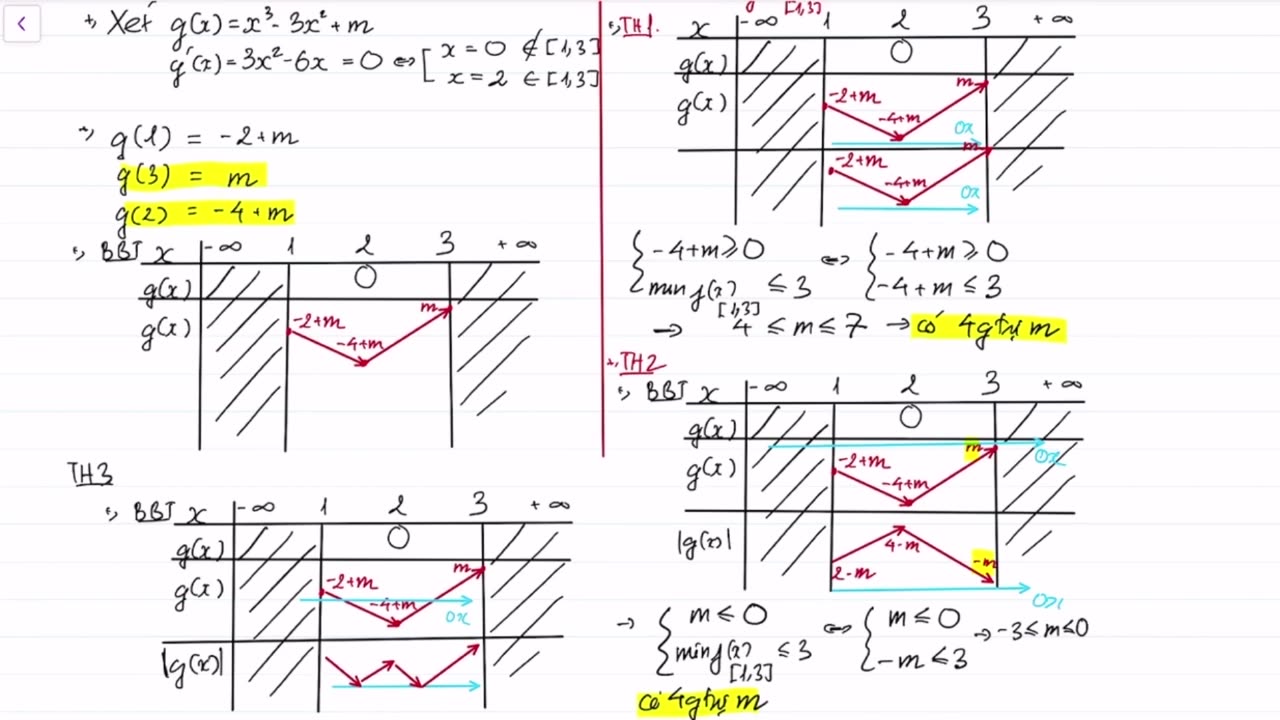 +, Xét g(x) = x³ - 3x² + m
g'(x) = 3x² - 6x = 0 ⇔ [ x = 0 ∉ [1,3]
x = 2 ∈ [1,3]
+, g(1) = -2+m
g(3) = m
g(2) = -4+m
+, BBT x -∞ 1 2 3 +∞
g(x) 0
g(x) -2+m -4+m m
TH3
+, BBT x -∞ 1 2 3 +∞
g(x) 0
g(x) -2+m -4+m m
Ox
|g(x)|
[1,3]
+, TH1. x -∞ 1 2 3 +∞
g(x) 0
g(x) -2+m -4+m m
Ox
-2+m -4+m m
Ox
{ -4+m ≥ 0 ⇔ { -4+m ≥ 0
min f(x) ≤ 3 -4+m ≤ 3
[1,3]
→ 4 ≤ m ≤ 7 → có 4 gtrị m
+, TH2
+, BBT x -∞ 1 2 3 +∞
g(x) 0
Ox
g(x) -2+m -4+m m
|g(x)| 2-m 4-m -m
Ox
→ { m ≤ 0 ⇔ { m ≤ 0 → -3 ≤ m ≤ 0
min f(x) ≤ 3 -m ≤ 3
[1,3]
có 4 gtrị m